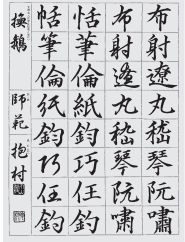 布射遼丸嵇琴阮嘯
布射遼丸嵇琴阮嘯
恬筆倫紙鈞巧任釣
恬筆倫紙鈞巧任釣
換鵝 師範 抱村